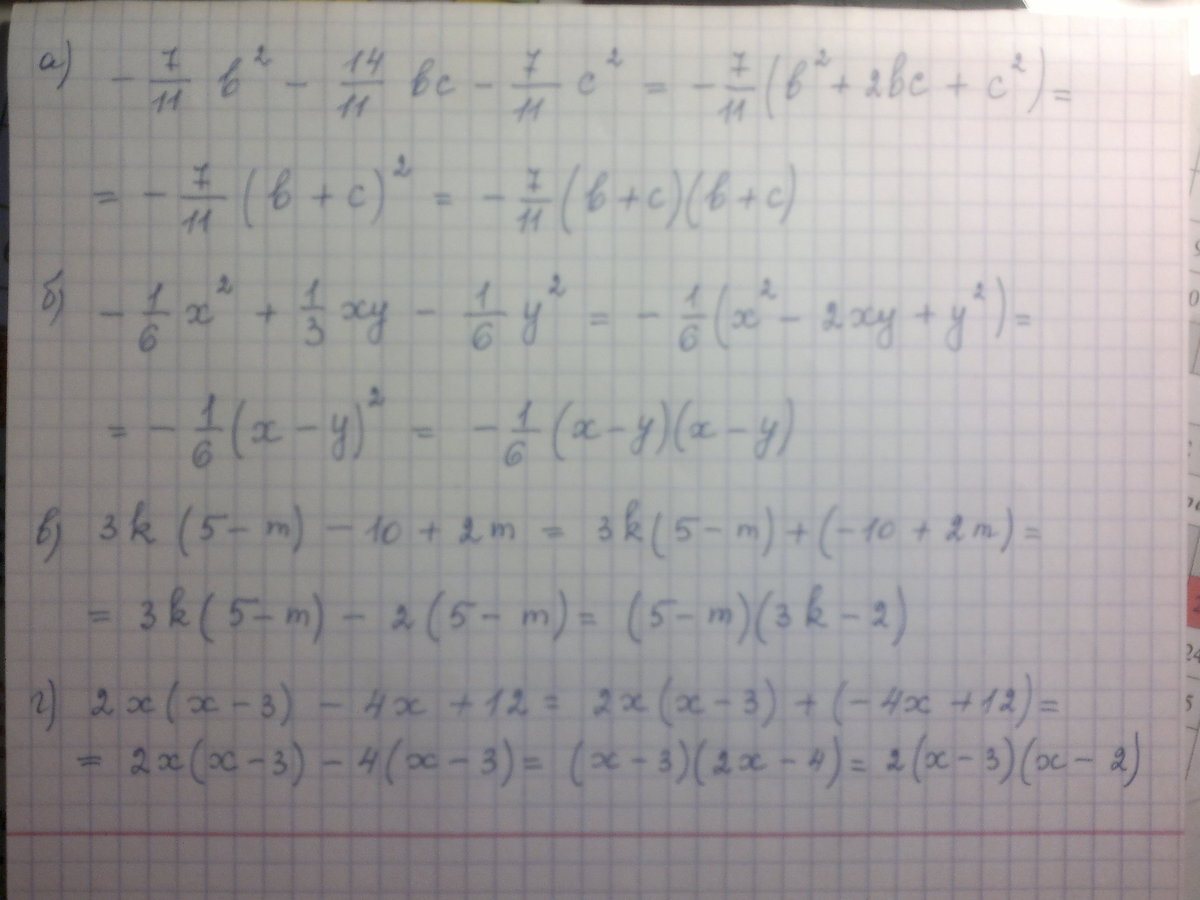 а) -7/11 b² - 14/11 bc - 7/11 c² = -7/11 (b² + 2bc + c²) =
= -7/11 (b + c)² = -7/11 (b + c)(b + c)
б) -1/6 x² + 1/3 xy - 1/6 y² = -1/6 (x² - 2xy + y²) =
= -1/6 (x - y)² = -1/6 (x - y)(x - y)
в) 3k (5 - m) - 10 + 2m = 3k(5 - m) + (-10 + 2m) =
= 3k(5 - m) - 2(5 - m) = (5 - m)(3k - 2)
г) 2x(x - 3) - 4x + 12 = 2x(x - 3) + (-4x + 12) =
= 2x(x - 3) - 4(x - 3) = (x - 3)(2x - 4) = 2(x - 3)(x - 2)